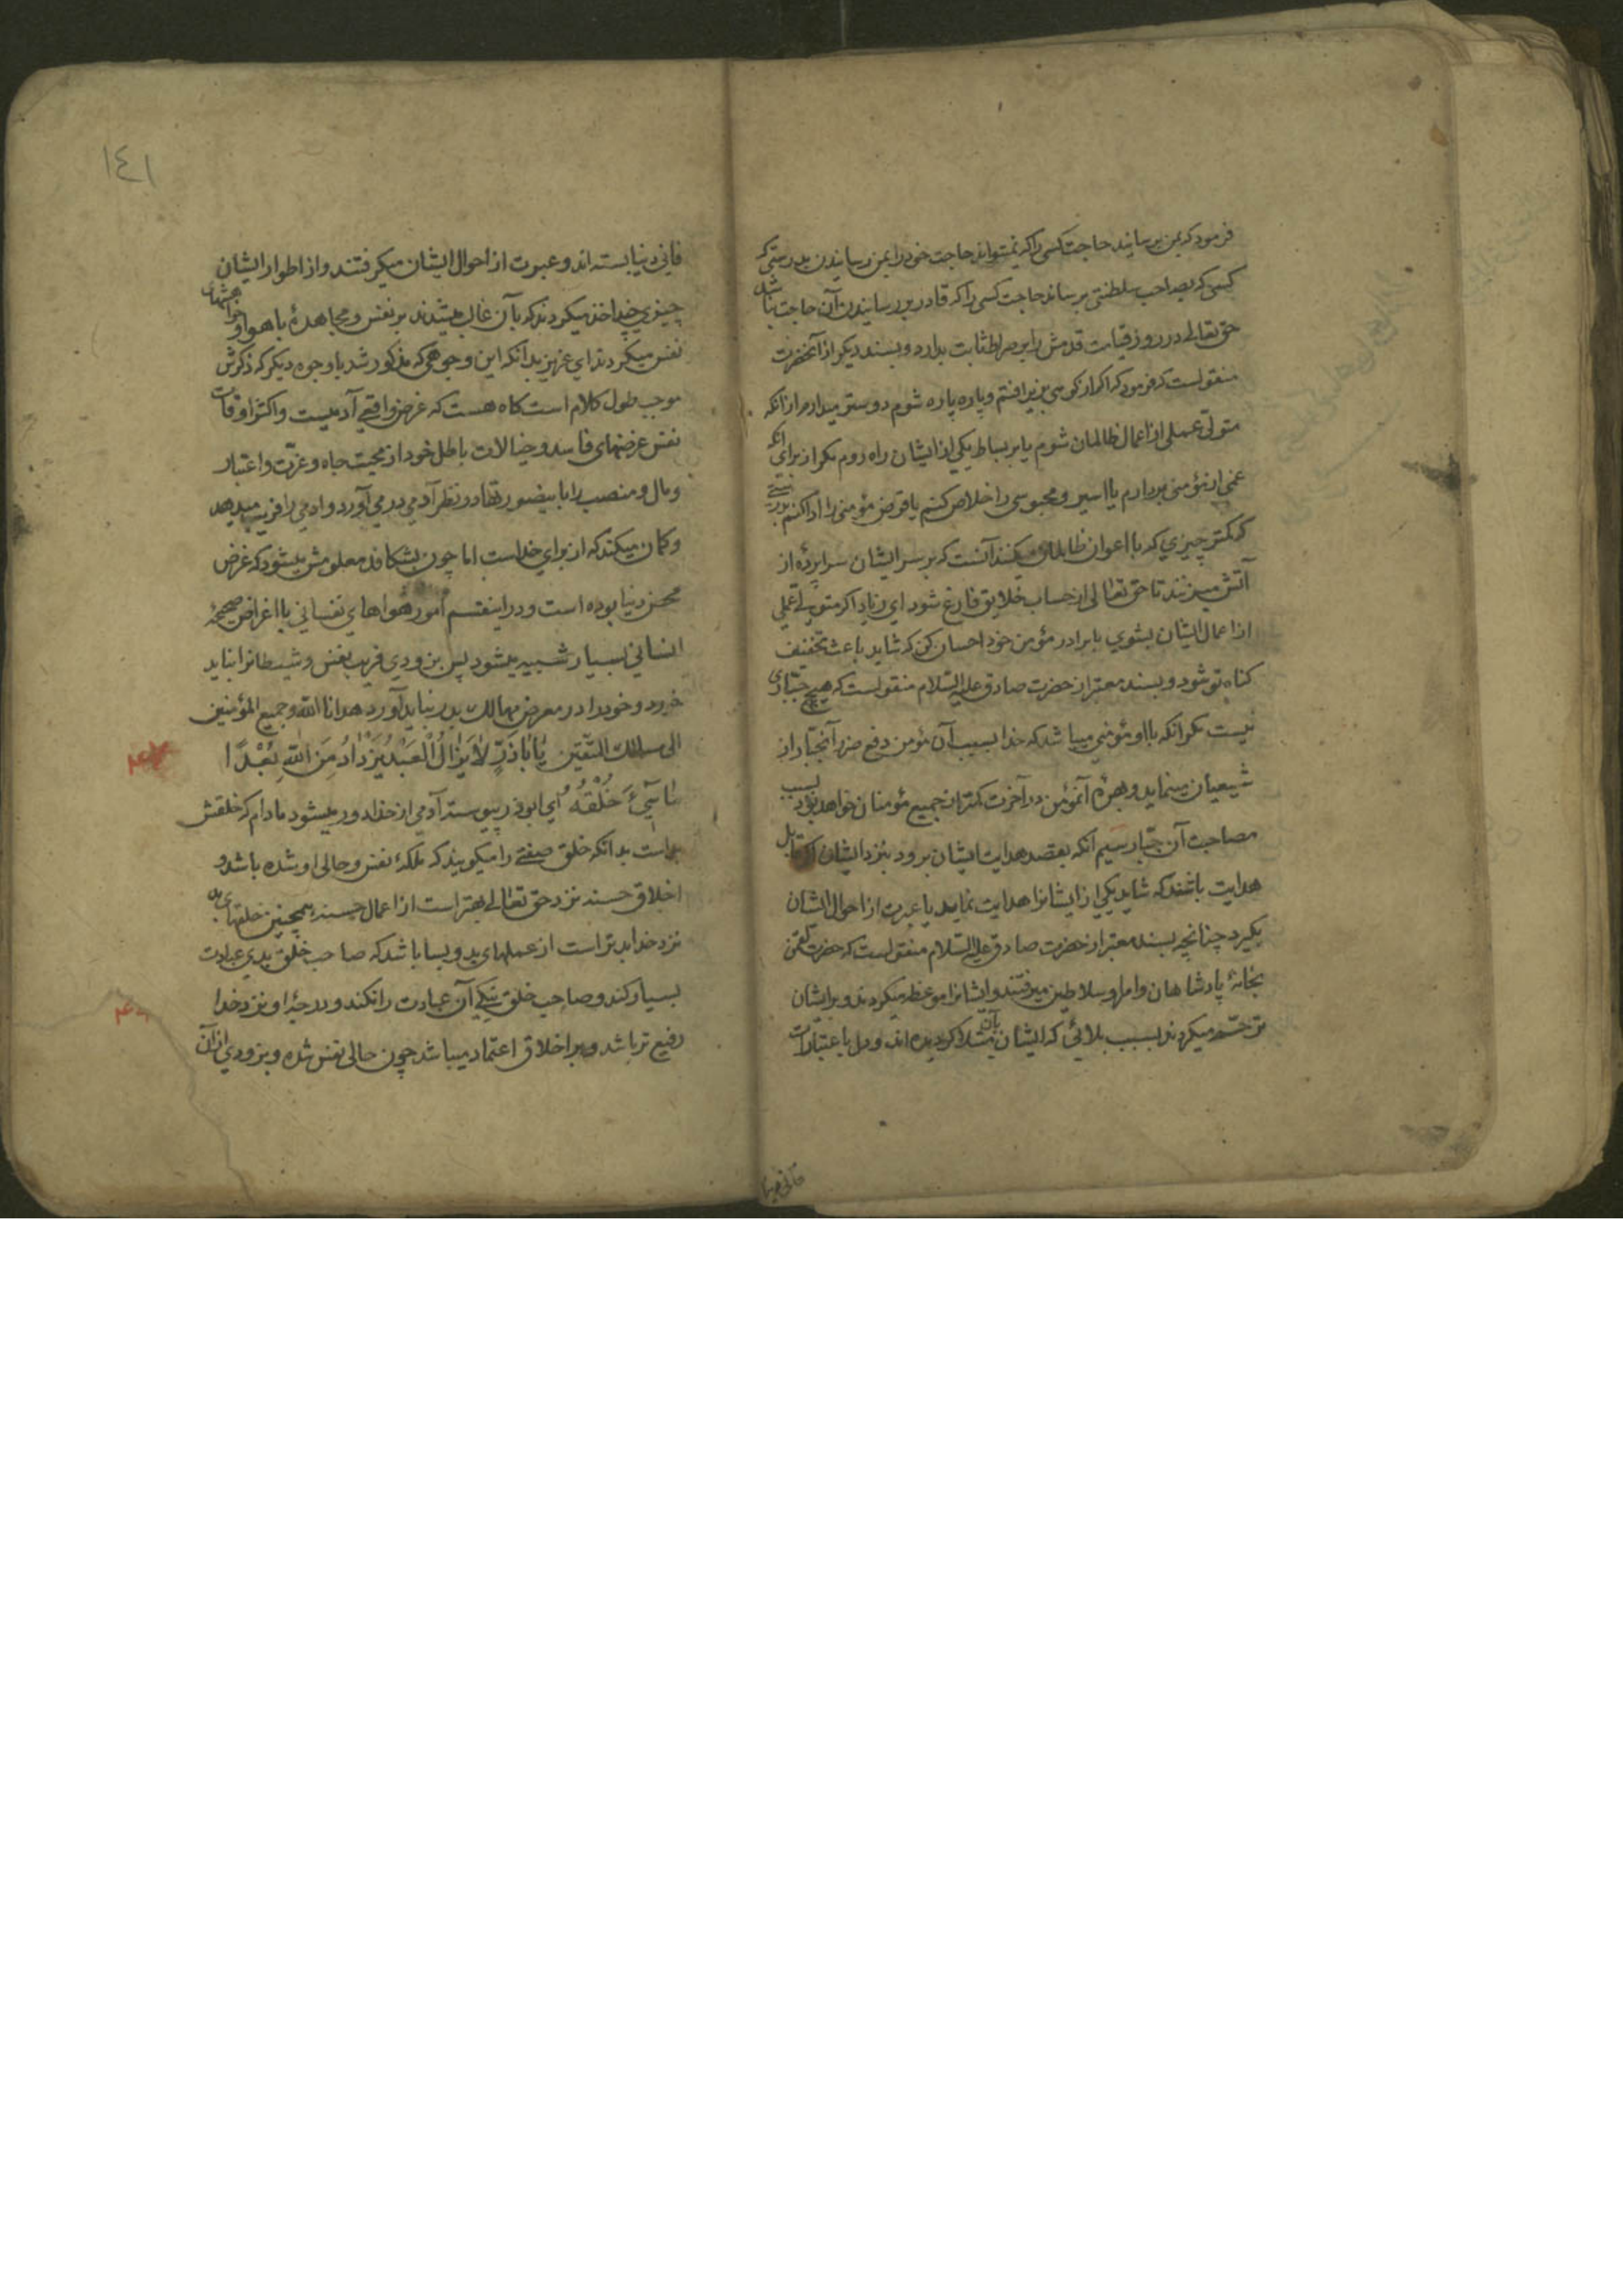 فرمود که بمن برسانید حاجت کسی را که نمیتواند حاجت خود را بمن رسانیدن بدرستی که
کسی که بصاحب سلطنتی برساند حاجت کسی را که قادر بر رسانیدن آن حاجت نباشد
حق تعالی در روز قیامت قدمش را بر صراط ثابت بدارد و بسند دیگر از آنحضرت
منقولست که فرمود که اکر از کوهی بزیر افتم و پاره پاره شوم دوستر میدارم از آنکه
متولی عملی از اعمال ظالمان شوم یا بر بساط یکی از ایشان راه روم مکر از برای آنکه
غمی از مؤمنی بردارم یا اسیر و محبوسی را خلاص کنم یا قرض مؤمنی را ادا کنم بدرستی
که کمتر چیزی که با اعوان ظالمان میکنند آنست که بر سر ایشان سراپرده از
آتش میزنند تا حق تعالی از حساب خلایق فارغ شود ای زیاد اکر متولی عملی
از اعمال ایشان بشوی با برادر مؤمن خود احسان کن که شاید باعث تخفیف
کناه تو شود و بسند معتبر از حضرت صادق علیه السلام منقولست که هیچ جباری
نیست مکر آنکه با او مؤمنی میباشد که خدا بسبب آن مؤمن دفع ضرر آنجبار از
شیعیان مینماید و بهرهٔ آنمؤمن در آخرت کمتر از جمیع مؤمنان خواهد بود بسبب
مصاحبت آن جبار سیم آنکه بقصد هدایت ایشان برود بنزد ایشان اکر قابل
هدایت باشند که شاید یکی از ایشانرا هدایت نماید یا عبرت از احوال ایشان
بکیرد چنانچه بسند معتبر از حضرت صادق علیه السلام منقولست که حضرت لقمان
بخانهٔ پادشاهان و امرا و سلاطین میرفتند و ایشانرا موعظه میکردند و بر ایشان
ترحم میکردند بسبب بلائی که ایشان بآن مبتلا کردیده اند و دل باعتبارات
فانی دنیا
١٤١
فانی دنیا بسته اند و عبرت از احوال ایشان میکرفتند و از اطوار ایشان
چیزی چند اخذ میکردند که بآن غالب میشدند بر نفس و مجاهده با هوا و خواهشهای
نفس میکردند ای عزیز بدانکه این وجوهی که مذکور شد یا وجوه دیکر که ذکرش
موجب طول کلام است کاه هست که غرض واقعی آدمیست و اکثر اوقات
نفس غرضهای فاسد و خیالات باطل خود از محبت جاه و عزت و اعتبار
و مال و منصب را باینصورتها در نظر آدمی در می آورد و ادمی را فریب میدهد
و کمان میکند که از برای خداست اما چون بشکافد معلومش میشود که غرض
محض دنیا بوده است و در اینقسم امور هواهای نفسانی با اغراض صحیحهٔ
انسانی بسیار شبیه میشود پس بزودی فریب نفس و شیطانرا نباید
خورد و خود را در معرض مهالک بدر نباید آورد هدانا الله و جمیع المؤمنین
الی مسالک المتقین یَا بَاذَرٍّ لَا یَزَالُ الْعَبْدُ یَزْدَادُ مِنَ اللهِ بُعْدًا
مَا سَآئَ خُلْقُهُ ای ابوذر پیوسته آدمی از خدا دور میشود مادام که خلقش
بد است بدانکه خلق صفتی را میکویند که ملکهٔ نفس و حالی او شده باشد و
اخلاق حسنه نزد حق تعالی بهتر است از اعمال حسنه همچنین خلقهای بد
نزد خدا بدتر است از عملهای بد و بسا باشد که صاحب خلق بدی عبادت
بسیار کند و صاحب خلق نیکی آن عبادت را نکند و درجهٔ او نزد خدا
رفیع تر باشد و بر اخلاق اعتماد میباشد چون حالی نفس شده و بزودی از آن